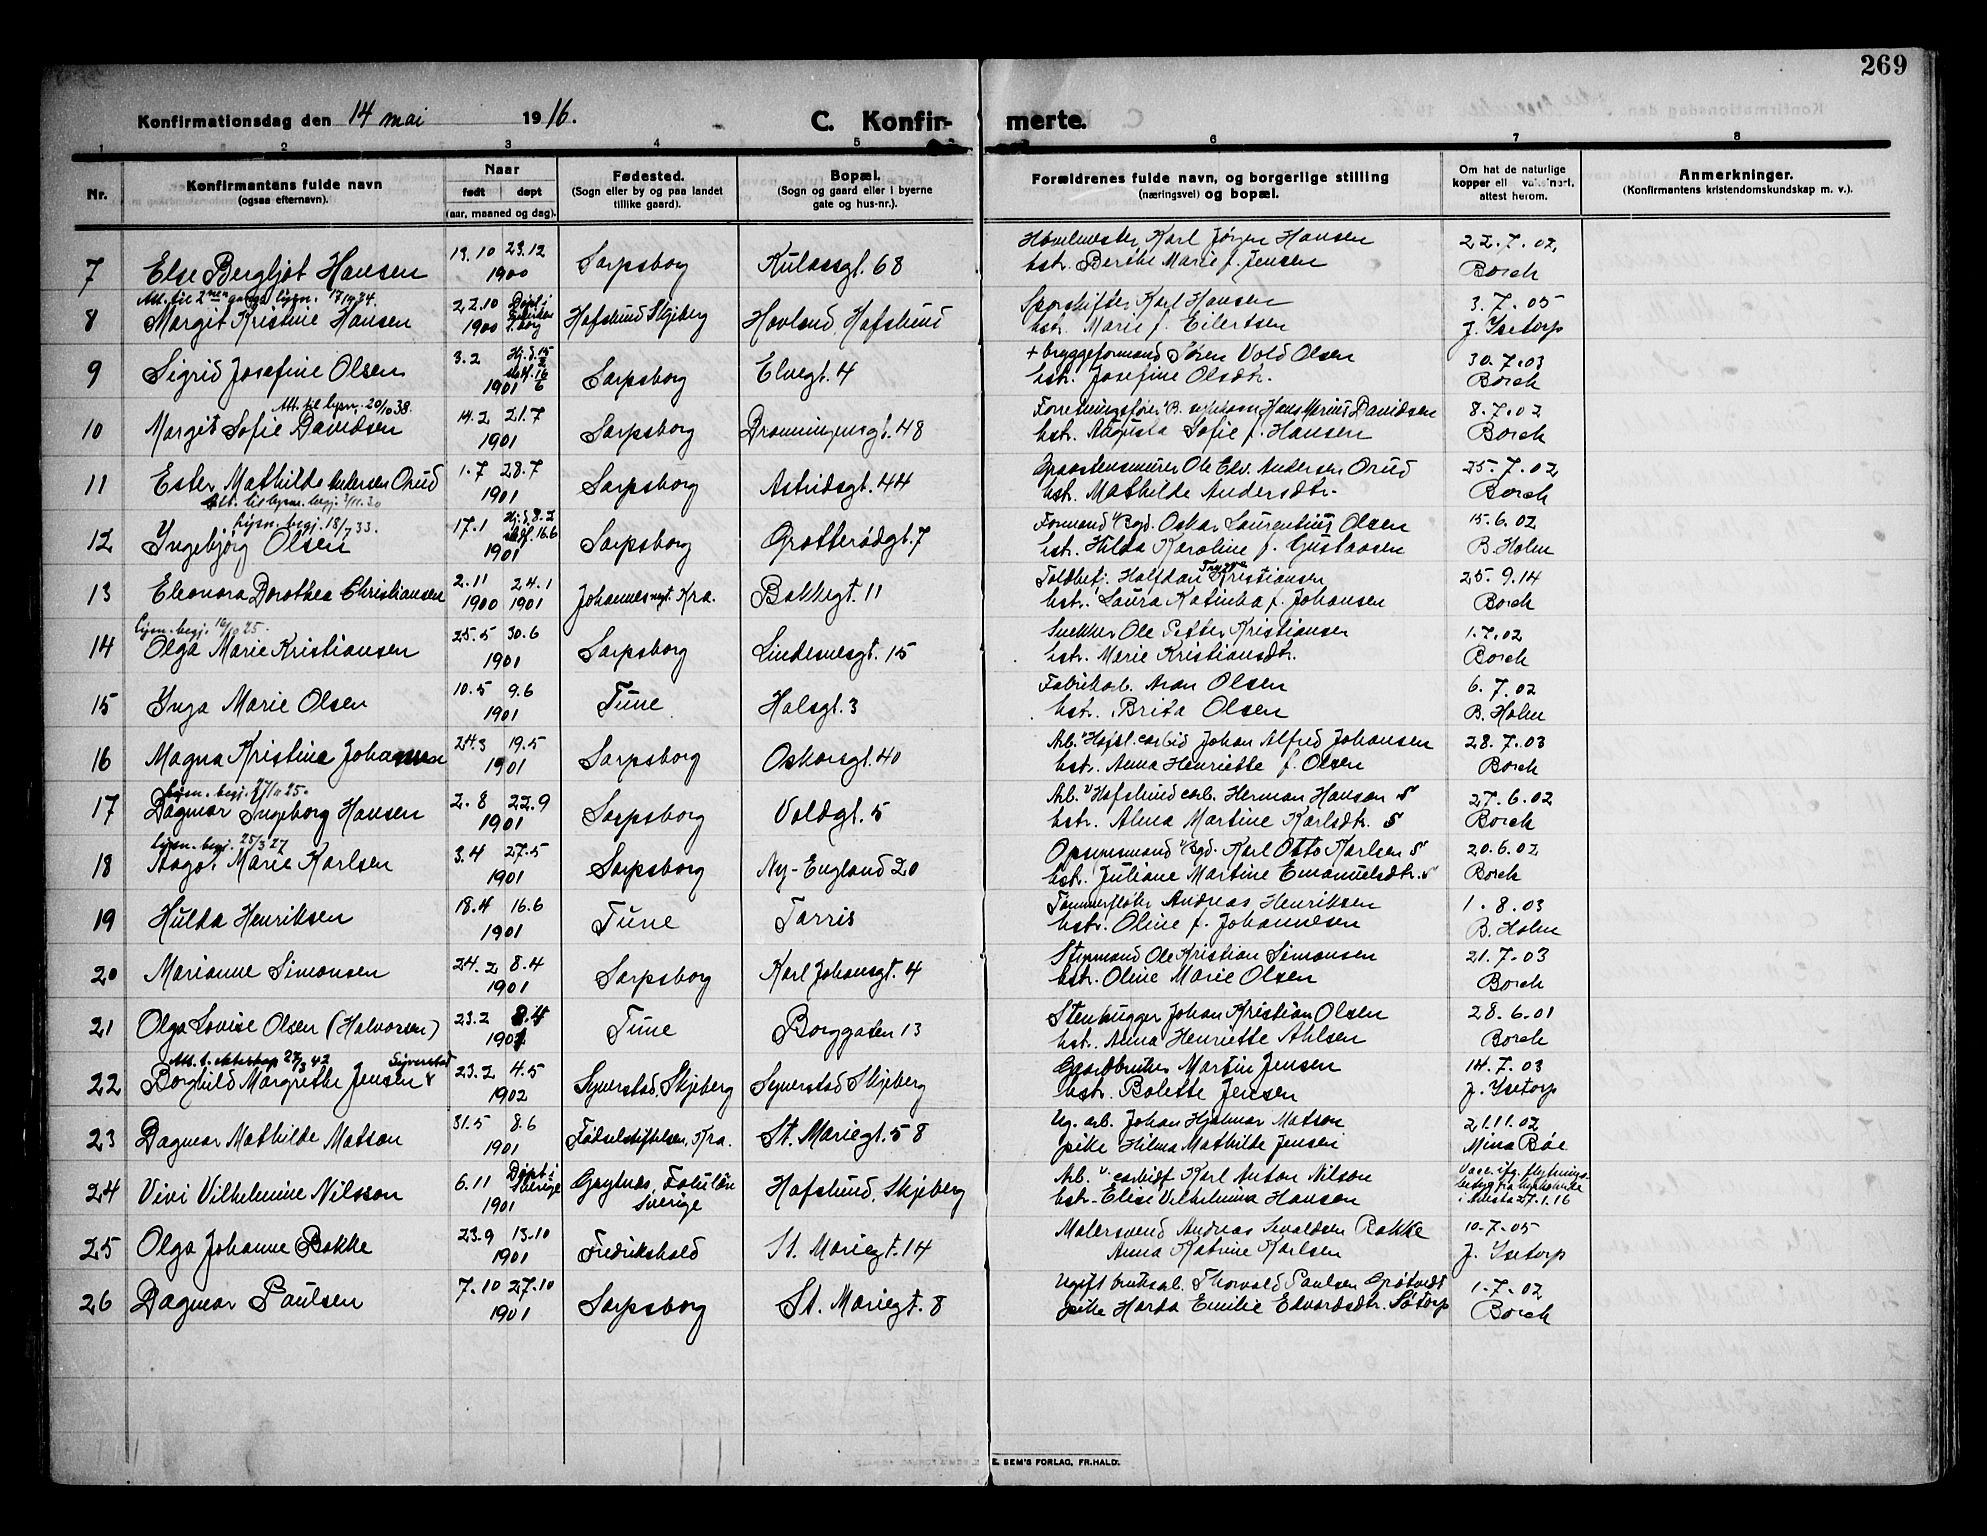 269
Konfirmationsdag den 14 mai 1916.
C. Konfirmerte.
1 2 3 4 5 6 7 8
Nr. Konfirmantens fulde navn (ogsaa efternavn). Naar født døpt (aar, maaned og dag). Fødested. (Sogn eller by og paa landet tillike gaard). Bopæl. (Sogn og gaard eller i byerne gate og hus-nr.). Forældrenes fulde navn, og borgerlige stilling (næringsvei) og bopæl. Om hat de naturlige kopper ell vaksinert, attest herom. Anmerkninger. (Konfirmantens kristendomskundskap m. v.).
7 Else Bergljot Hansen 13.10 23.12 1900 Sarpsborg Kulåsgt. 68 Karl Jørgen Hansen 22.7.02
hstr. Berthe Marie f. Jensen Borch
Att. til 2nen gangs lysn. 17/10 24.
8 Margit Kristine Hansen 22.10 1900 Hafslund Skjeberg Hovland, Hafslund Sporskifter Karl Hansen 3.7.05
hstr. Marie f. Eilertsen J. Isetorp
9 Sigrid Josefine Olsen 3.2 Hj.d. 15/2 stadf. 16/6 1901 Sarpsborg Elvegt. 4 + bryggeformand Søren Vold Olsen 30.7.03
hstr. Josefine Olsdtr. Borch
Att. til lysn. 20/10 38.
10 Margit Sofie Davidsen 14.2 21.7 1901 Sarpsborg Dronningensgt. 48 Forretningsfører Hans Marius Davidsen 8.7.02
hstr. Augusta Sofie f. Hansen Borch
11 Ester Mathilde Andersen Orud 1.7 28.7 1901 Sarpsborg Astridsgt. 44 Graastensmurer Ole Edv. Andersen Orud 25.7.02
Att. til lysn. begj. 3/11.30 hstr. Mathilde Andersdtr. Borch
Lysn. begj. 18/7 33.
12 Ingebjörg Olsen 17.1 Hj.d. 8.2 stadf. 16.6 1901 Sarpsborg Grotterødgt. 7 Formand v/Bgd. Oskar Laurentius Olsen 15.6.02
hstr. Hilda Karoline f. Gustavsen B. Holm
13 Eleonora Dorothea Christiansen 2.11 1900 24.1 1901 Johannes mgt. Kra. Bakkegt. 11 Toldbetj. Halfdan Tryggve Kristiansen 25.9.14
hstr. Laura Katinka f. Johansen Borch
Lysn. begj. 25.
14 Olga Marie Kristiansen 25.5 30.6 1901 Sarpsborg Lindemsgt. 15 Snekker Ole Petter Kristiansen 1.7.02
hstr. Marie Kristiansdtr. Borch
15 Inga Marie Olsen 10.5 9.6 1901 Tune Halsgt. 3 Fabrikarb. Aron Olsen 6.7.02
hstr. Brita Olsen B. Holm
16 Magna Kristine Johansen 24.3 19.5 1901 Sarpsborg Oskarsgt. 40 Arb. v Hafsl. carbid Johan Alfred Johansen 28.7.03
hstr. Anna Henriette f. Olsen Borch
Lysn. begj. 27/10 25.
17 Dagmar Ingeborg Hansen 2.8 22.9 1901 Sarpsborg Voldgt. 5 Arb. v Hafslund carb. Herman Hansen S 27.6.02
hstr. Alma Martine Karlsdtr. S Borch
Lysn. begj. 25/3 27
18 Aagot Marie Karlsen 3.4 27.5 1901 Sarpsborg Ny-England 20 Opsynsmand v/Bgd. Karl Otto Karlsen S 20.6.02
hstr. Juliane Martine Emanuelsdtr. S Borch
19 Hulda Henriksen 18.4 16.6 1901 Tune Tarris Tømmerfløter Andreas Henriksen 1.8.03
hstr. Oline f. Johannesen B. Holm
20 Marianne Simonsen 24.2 8.4 1901 Sarpsborg Karl Johansgt. 4 Styrmand Ole Kristian Simonsen 21.7.03
hstr. Oline Marie Olsen Borch
21 Olga Lovise Olsen (Halvorsen) 23.2 8.4 1901 Tune Borggaten 13 Stenhugger Johan Kristian Olsen 28.6.01
hstr. Anna Henriette Ahlsen Borch
Att. t. ekteskap 27/3 42 Synerstad
22 Borghild Margrethe Jensen 23.2 4.5 1902 Synerstad, Skjeberg Synerstad Skjeberg Gaardbruker Martin Jensen 14.7.03
hstr. Bolette Jensen J. Isetorp
23 Dagmar Mathilde Matson 31.5 8.6 1901 Fødselstiftelsen, Kra. St. Mariegt. 58 Ug. arb. Johan Hjalmar Matson 21.11.02
pike Hilma Mathilde Jensen Mina Bøe
24 Vivi Vilhelmine Nilsson 6.11 Døpt i Sverige 1901 Sverige Hafslund, Skjeberg Arb. v. carbidf Karl Anton Nilson Vacc. ifg. flytnings-
hstr. Elise Vilhelmina Hansen i Avesta 27.1.16
25 Olga Johanne Bakke 23.9 13.10 1901 Fredrikshald St. Mariegt. 14 Malersvend Andreas Sevaldsen Bakke 10.7.05
Anna Katrine Karlsen J. Isetorp
26 Dagmar Paulsen 7.10 27.10 1901 Sarpsborg St. Mariegt. 8 Ugift bruksarb. Thorvald Paulsen Grøtvedt 1.7.02
pike Harda Emilie Edvardsdtr. Søtorp Borch
E. SEM'S FORLAG, FR.HALD.